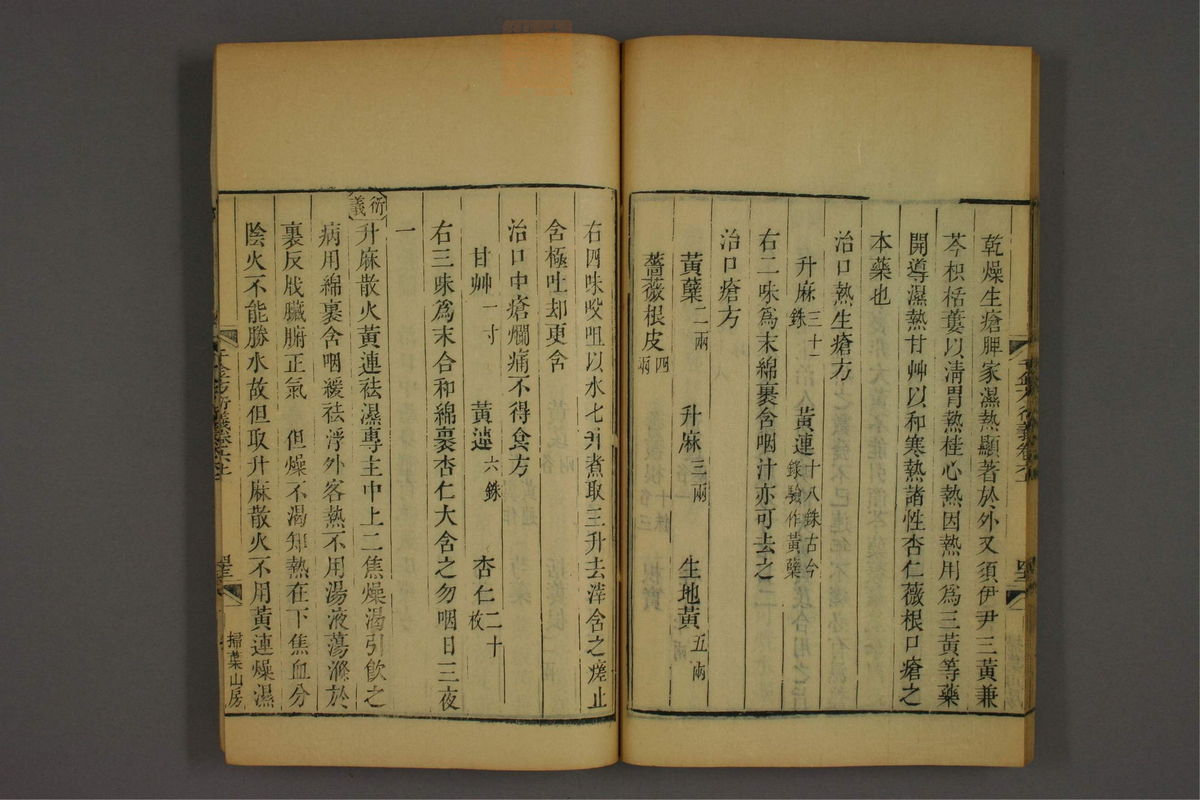 乾燥生瘡脾家濕熱顯著於外又須伊尹三黃兼
芩枳栝蔞以清胃熱桂心熱因熱用爲三黃等藥
開導濕熱甘艸以和寒熱諸性杏仁薇根口瘡之
本藥也
治口熱生瘡方
升麻三十銖 黃連十八銖古今錄驗作黃蘗
右二味爲末綿裹含咽汁亦可去之
治口瘡方
黃蘗二兩 升麻三兩 生地黃五兩
薔薇根皮四兩
右四味㕮咀以水七升煮取三升去滓含之瘥止
含極吐却更含
治口中瘡爛痛不得食方
甘艸一寸 黃連六銖 杏仁二十枚
右三味爲末合和綿裹杏仁大含之勿咽日三夜
一
衍義
升麻散火黃連祛濕專主中上二焦燥渴引飲之
病用綿裹含咽緩祛浮外客熱不用湯液蕩滌於
裏反戕臟腑正氣 但燥不渴知熱在下焦血分
陰火不能勝水故但取升麻散火不用黃連燥濕
千金方衍義卷六上
掃葉山房